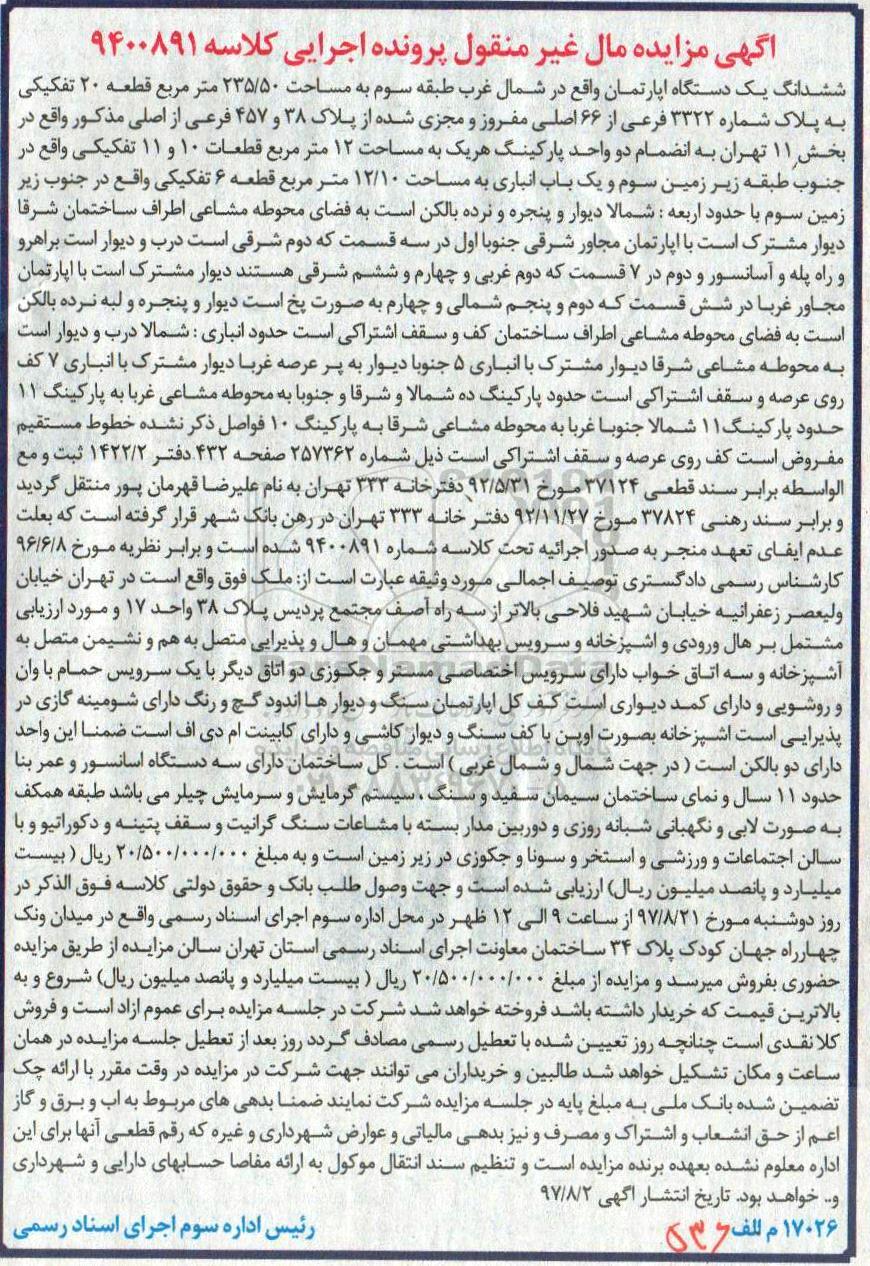 اگهی مزایده مال غیر منقول پرونده اجرایی کلاسه ۹۴۰۰۸۹۱
ششدانگ یک دستگاه اپارتمان واقع در شمال غرب طبقه سوم به مساحت ۲۳۵/۵۰ متر مربع قطعه ۲۰ تفکیکی
به پلاک شماره ۳۳۲۲ فرعی از ۶۶ اصلی مفروز و مجزی شده از پلاک ۳۸ و ۴۵۷ فرعی از اصلی مذکور واقع در
بخش ۱۱ تهران به انضمام دو واحد پارکینگ هریک به مساحت ۱۲ متر مربع قطعات ۱۰ و ۱۱ تفکیکی واقع در
جنوب طبقه زیر زمین سوم و یک باب انباری به مساحت ۱۲/۱۰ متر مربع قطعه ۶ تفکیکی واقع در جنوب زیر
زمین سوم با حدود اربعه : شمالا دیوار و پنجره و نرده بالکن است به فضای محوطه مشاعی اطراف ساختمان شرقا
دیوار مشترک است با اپارتمان مجاور شرقی جنوبا اول در سه قسمت که دوم شرقی است درب و دیوار است براهرو
و راه پله و آسانسور و دوم در ۷ قسمت که دوم غربی و چهارم و ششم شرقی هستند دیوار مشترک است با اپارتمان
مجاور غربا در شش قسمت که دوم و پنجم شمالی و چهارم به صورت پخ است دیوار و پنجره و لبه نرده بالکن
است به فضای محوطه مشاعی اطراف ساختمان کف و سقف اشتراکی است حدود انباری : شمالا درب و دیوار است
به محوطه مشاعی شرقا دیوار مشترک با انباری ۵ جنوبا دیوار به پر عرصه غربا دیوار مشترک با انباری ۷ کف
روی عرصه و سقف اشتراکی است حدود پارکینگ ده شمالا و شرقا و جنوبا به محوطه مشاعی غربا به پارکینگ ۱۱
حدود پارکینگ۱۱ شمالا جنوبا غربا به محوطه مشاعی شرقا به پارکینگ ۱۰ فواصل ذکر نشده خطوط مستقیم
مفروض است کف روی عرصه و سقف اشتراکی است ذیل شماره ۲۵۷۳۶۲ صفحه ۴۳۲ دفتر ۱۴۲۲/۲ ثبت و مع
الواسطه برابر سند قطعی ۳۷۱۲۴ مورخ ۹۲/۵/۳۱ دفترخانه ۳۳۳ تهران به نام علیرضا قهرمان پور منتقل گردید
و برابر سند رهنی ۳۷۸۲۴ مورخ ۹۲/۱۱/۲۷ دفتر خانه ۳۳۳ تهران در رهن بانک شهر قرار گرفته است که بعلت
عدم ایفای تعهد منجر به صدور اجرائیه تحت کلاسه شماره ۹۴۰۰۸۹۱ شده است و برابر نظریه مورخ ۹۶/۶/۸
کارشناس رسمی دادگستری توصیف اجمالی مورد وثیقه عبارت است از: ملک فوق واقع است در تهران خیابان
ولیعصر زعفرانیه خیابان شهید فلاحی بالاتر از سه راه آصف مجتمع پردیس پلاک ۳۸ واحد ۱۷ و مورد ارزیابی
مشتمل بر هال ورودی و اشپزخانه و سرویس بهداشتی مهمان و هال و پذیرایی متصل به هم و نشیمن متصل به
آشپزخانه و سه اتاق خواب دارای سرویس اختصاصی مستر و جکوزی دو اتاق دیگر با یک سرویس حمام با وان
و روشویی و دارای کمد دیواری است کف کل اپارتمان سنگ و دیوار ها اندود گچ و رنگ دارای شومینه گازی در
پذیرایی است اشپزخانه بصورت اوپن با کف سنگ و دیوار کاشی و دارای کابینت ام دی اف است ضمنا این واحد
دارای دو بالکن است ( در جهت شمال و شمال غربی ) است . کل ساختمان دارای سه دستگاه اسانسور و عمر بنا
حدود ۱۱ سال و نمای ساختمان سیمان سفید و سنگ ، سیستم گرمایش و سرمایش چیلر می باشد طبقه همکف
به صورت لابی و نگهبانی شبانه روزی و دوربین مدار بسته با مشاعات سنگ گرانیت و سقف پتینه و دکوراتیو و با
سالن اجتماعات و ورزشی و استخر و سونا و جکوزی در زیر زمین است و به مبلغ ۲۰/۵۰۰/۰۰۰/۰۰۰ ریال ( بیست
میلیارد و پانصد میلیون ریال) ارزیابی شده است و جهت وصول طلب بانک و حقوق دولتی کلاسه فوق الذکر در
روز دوشنبه مورخ ۹۷/۸/۲۱ از ساعت ۹ الی ۱۲ ظهر در محل اداره سوم اجرای اسناد رسمی واقع در میدان ونک
چهارراه جهان کودک پلاک ۳۴ ساختمان معاونت اجرای اسناد رسمی استان تهران سالن مزایده از طریق مزایده
حضوری بفروش میرسد و مزایده از مبلغ ۲۰/۵۰۰/۰۰۰/۰۰۰ ریال ( بیست میلیارد و پانصد میلیون ریال) شروع و به
بالاترین قیمت که خریدار داشته باشد فروخته خواهد شد شرکت در جلسه مزایده برای عموم ازاد است و فروش
کلا نقدی است چنانچه روز تعیین شده با تعطیل رسمی مصادف گردد روز بعد از تعطیل جلسه مزایده در همان
ساعت و مکان تشکیل خواهد شد طالبین و خریداران می توانند جهت شرکت در مزایده در وقت مقرر با ارائه چک
تضمین شده بانک ملی به مبلغ پایه در جلسه مزایده شرکت نمایند ضمنا بدهی های مربوط به اب و برق و گاز
اعم از حق انشعاب و اشتراک و مصرف و نیز بدهی مالیاتی و عوارض شهرداری و غیره که رقم قطعی آنها برای این
اداره معلوم نشده بعهده برنده مزایده است و تنظیم سند انتقال موکول به ارائه مفاصا حسابهای دارایی و شهرداری
و.. خواهد بود. تاریخ انتشار اگهی ۹۷/۸/۲
۱۷۰۲۶ م للف
رئیس اداره سوم اجرای اسناد رسمی